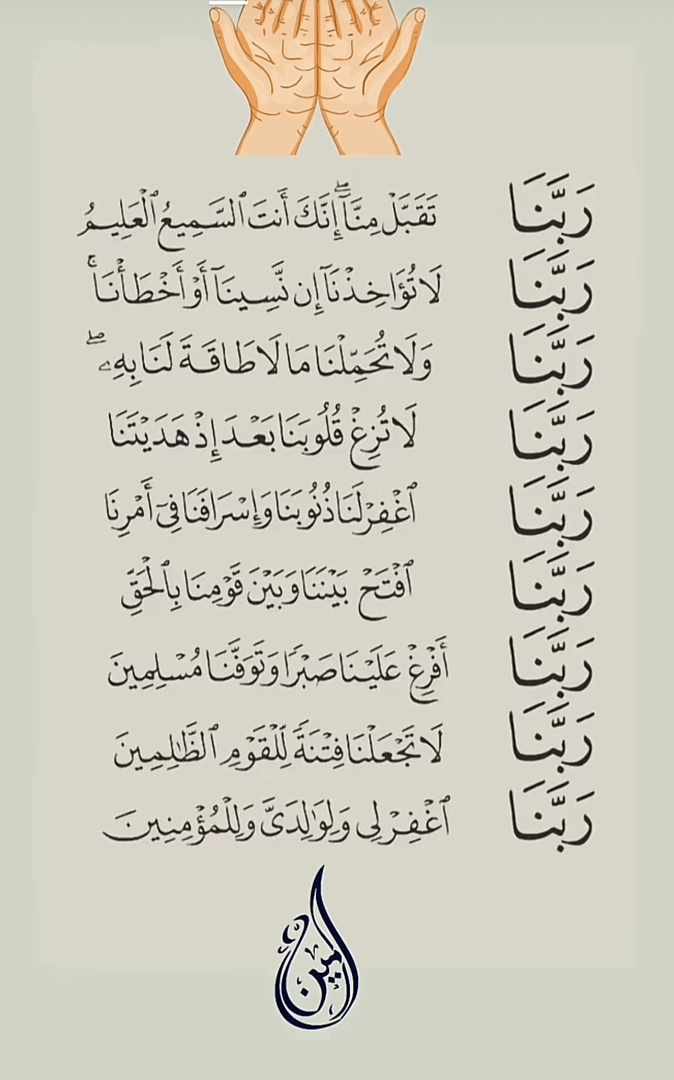 رَبَّنَا تَقَبَّلْ مِنَّآ ۖ إِنَّكَ أَنتَ ٱلسَّمِيعُ ٱلْعَلِيمُ
رَبَّنَا لَا تُؤَاخِذْنَآ إِن نَّسِينَآ أَوْ أَخْطَأْنَا ۚ
رَبَّنَا وَلَا تُحَمِّلْنَا مَا لَا طَاقَةَ لَنَا بِهِۦ ۖ
رَبَّنَا لَا تُزِغْ قُلُوبَنَا بَعْدَ إِذْ هَدَيْتَنَا
رَبَّنَا ٱغْفِرْ لَنَا ذُنُوبَنَا وَإِسْرَافَنَا فِىٓ أَمْرِنَا
رَبَّنَا ٱفْتَحْ بَيْنَنَا وَبَيْنَ قَوْمِنَا بِٱلْحَقِّ
رَبَّنَآ أَفْرِغْ عَلَيْنَا صَبْرًا وَتَوَفَّنَا مُسْلِمِينَ
رَبَّنَا لَا تَجْعَلْنَا فِتْنَةً لِّلْقَوْمِ ٱلظَّٰلِمِينَ
رَبَّنَا ٱغْفِرْ لِى وَلِوَٰلِدَىَّ وَلِلْمُؤْمِنِينَ
آمين